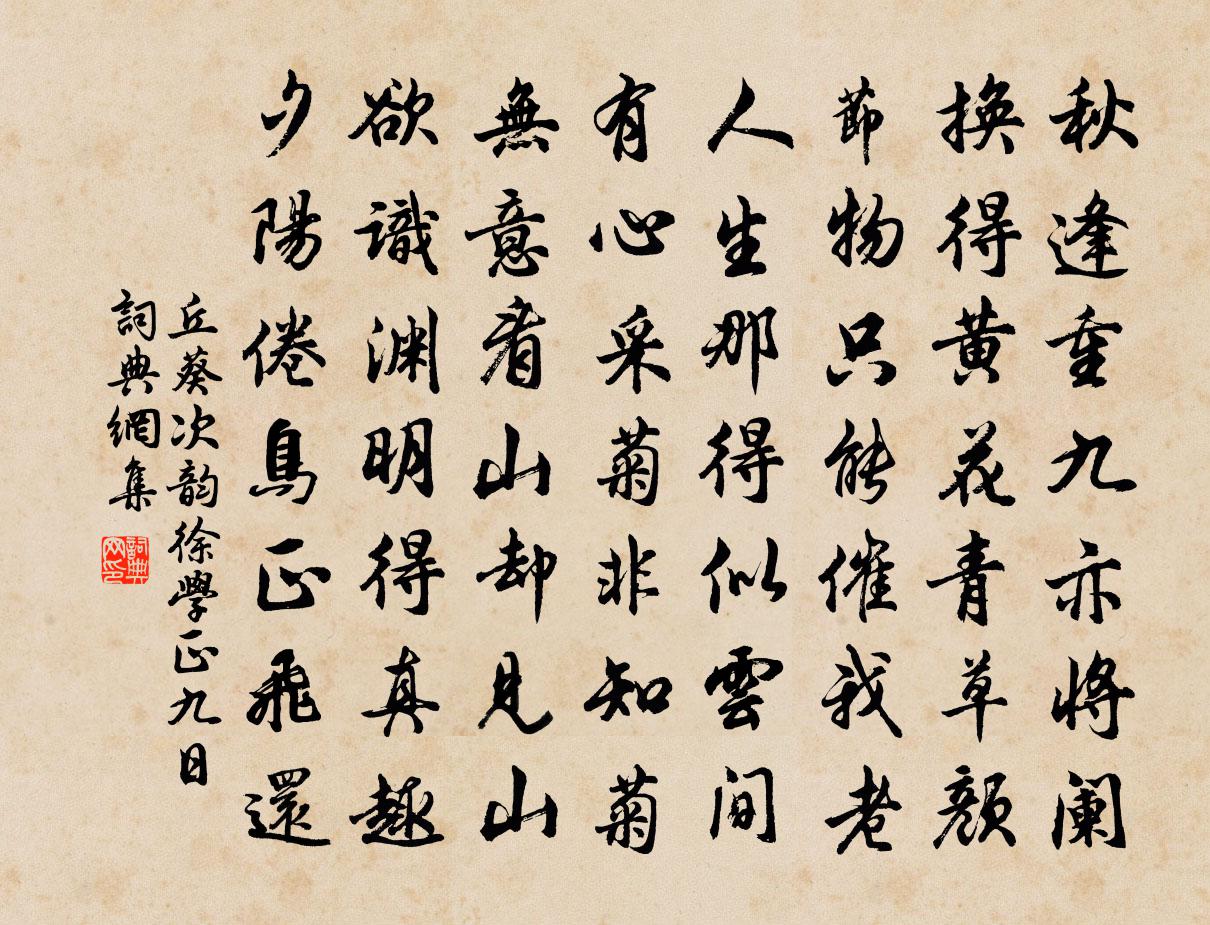 秋逢重九亦將闌
換得黃花青草顏
節物只能催我老
人生那得似雲間
有心采菊非知菊
無意看山却見山
欲識渊明得真趣
夕陽倦鳥正飛還
丘葵次韵徐學正九日
詞典網集
詞典网印